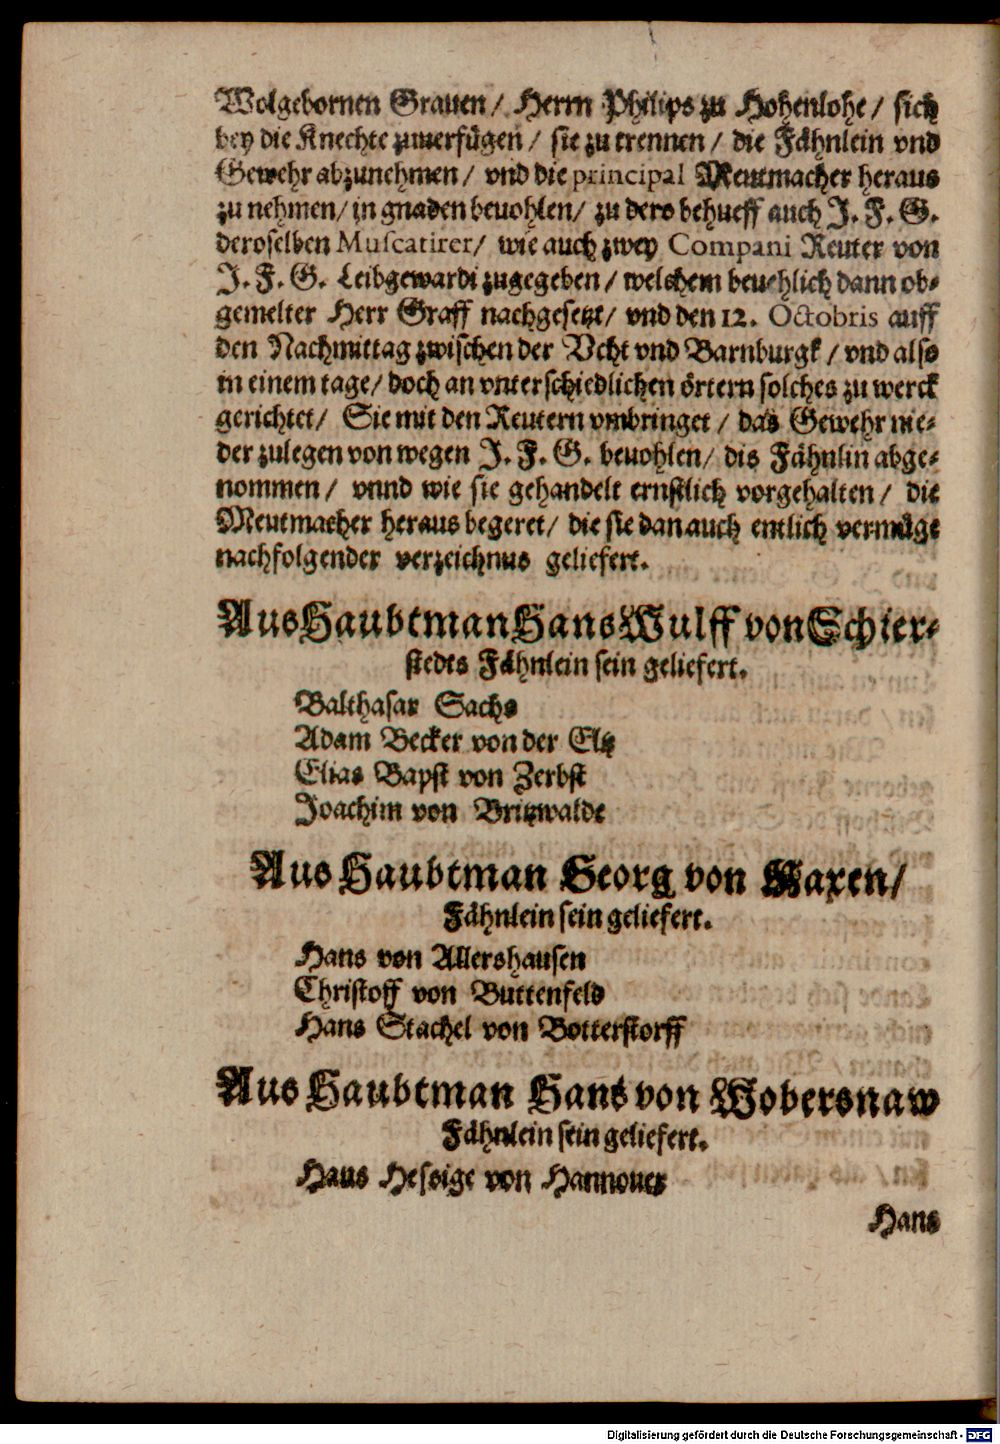 Wolgebornen Grauen/ Herrn Philips zu Hohenlohe/ sich
bey die Knechte zuuerfügen/ sie zu trennen/ die Fähnlein vnd
Gewehr abzunehmen/ vnd die principal Meutmacher heraus
zu nehmen/ in gnaden beuohlen/ zu dero behueff auch J. F. G.
deroselben Muscatirer/ wie auch zwey Compani Reuter von
J. F. G. Leibgewardi zugegeben/ welchem beuehlich dann ob-
gemelter Herr Graff nachgesetzt/ vnd den 12. Octobris auff
den Nachmittag zwischen der Vcht vnd Barnburgk/ vnd also
in einem tage/ doch an vnterschiedlichen örtern solches zu werck
gerichtet/ Sie mit den Reutern vmbringet/ das Gewehr nie-
der zulegen von wegen J. F. G. beuohlen/ dis Fähnlin abge-
nommen/ vnnd wie sie gehandelt ernstlich vorgehalten/ die
Meutmacher heraus begeret/ die sie dan auch entlich vermüge
nachfolgender verzeichnus geliefert.
Aus Haubtman Hans Wulff von Schier-
stedts Fähnlein sein geliefert.
Balthasar Sachs
Adam Becker von der Eltz
Elias Bapst von Zerbst
Joachim von Britzwalde
Aus Haubtman Georg von Maxen/
Fähnlein sein geliefert.
Hans von Allershausen
Christoff von Buttenfeld
Hans Stachel von Botterstorff
Aus Haubtman Hans von Wobersnaw
Fähnlein sein geliefert.
Hans von Hannouer
Hans
Digitalisierung gefördert durch die Deutsche Forschungsgemeinschaft - DFG